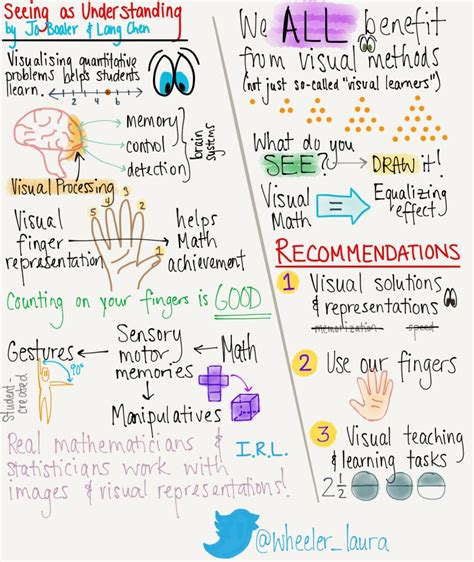 Seeing as Understanding
by Jo Boaler & Lang Chen
Visualising quantitative
problems helps students
learn.
2 4 6
memory
control
detection
brain
systems
Visual Processing
Visual
finger
representation
5 4 3 2 1
helps
Math
achievement
Counting on your fingers is GOOD
Gestures
Sensory
motor
memories
Math
90°
Student-
created
Manipulatives
Real mathematicians &
statisticians work with
images & visual representations!
I.R.L.
We ALL benefit
from visual methods
(not just so-called "visual learners")
What do you
SEE? DRAW it!
Visual
Math
=
Equalizing
effect
RECOMMENDATIONS
1 Visual solutions
& representations
memorization speed
2 Use our fingers
3 Visual teaching
& learning tasks
2 1/2
@wheeler_laura